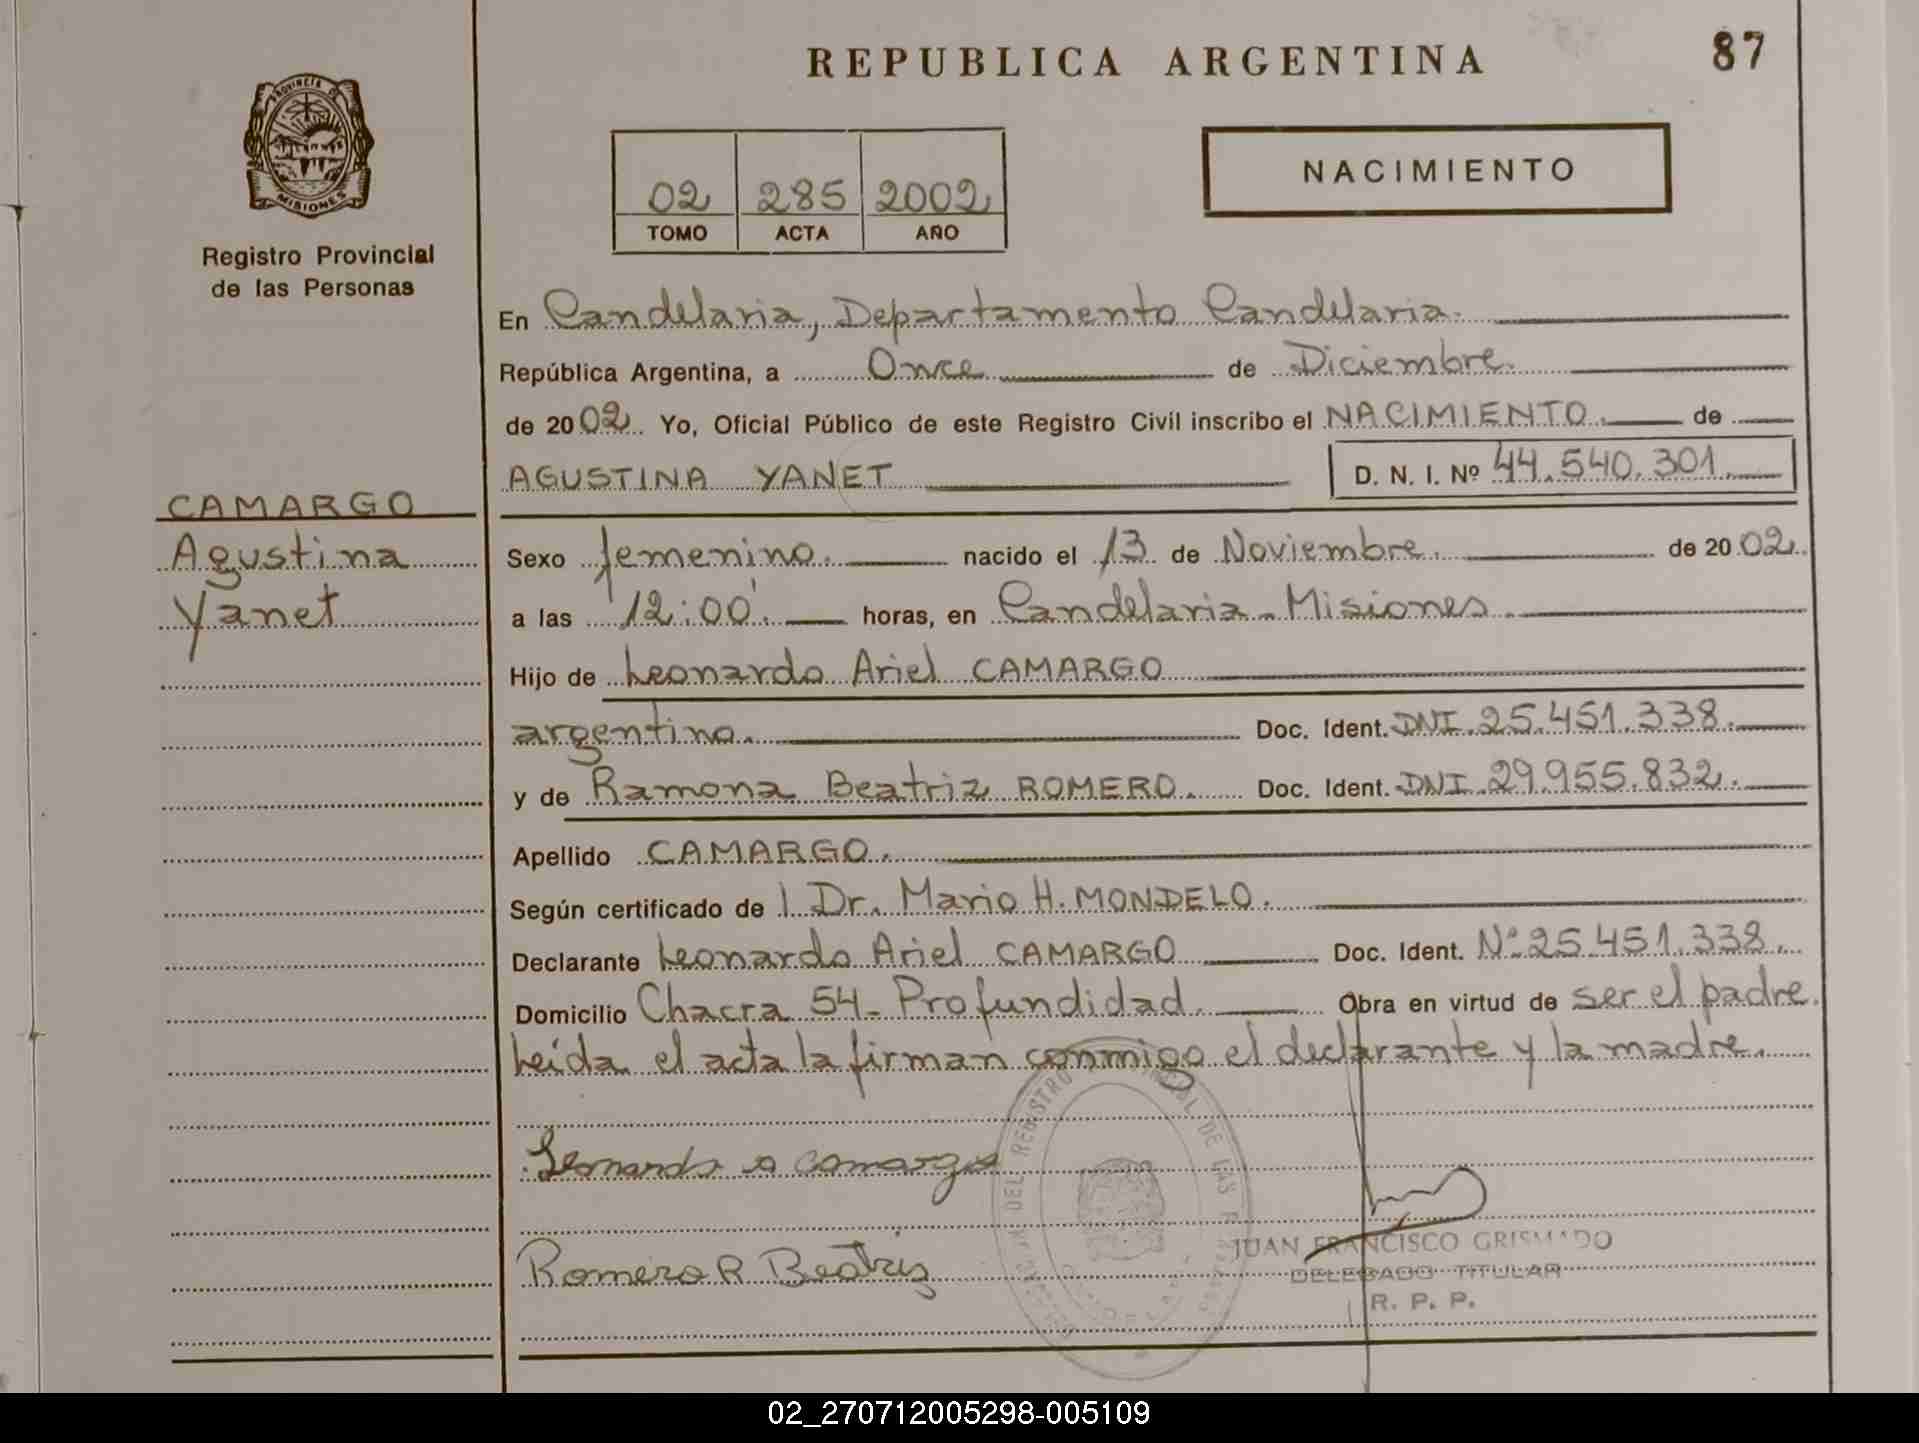 REPUBLICA ARGENTINA
87
PROVINCIA DE
MISIONES
Registro Provincial
de las Personas
02 285 2002
TOMO ACTA AÑO
NACIMIENTO
En Candelaria, Departamento Candelaria.
República Argentina, a Once de Diciembre.
de 2002. Yo, Oficial Público de este Registro Civil inscribo el NACIMIENTO. de
AGUSTINA YANET D. N. I. Nº 44.540.301.
CAMARGO
Agustina
Yanet
Sexo femenino. nacido el 13 de Noviembre. de 2002.
a las 12:00'. horas, en Candelaria - Misiones.
Hijo de Leonardo Ariel CAMARGO
argentino. Doc. Ident. DNI. 25.451.338.
y de Ramona Beatriz ROMERO. Doc. Ident. DNI. 29.955.832.
Apellido CAMARGO.
Según certificado de l Dr. Mario H. MONDELO.
Declarante Leonardo Ariel CAMARGO Doc. Ident. Nº 25.451.338.
Domicilio Chacra 54 - Profundidad. Obra en virtud de ser el padre.
Leída el acta la firman conmigo el declarante y la madre.
Leonardo a Camargo
Romero R Beatriz
DEL REGISTRO DE LAS
JUAN FRANCISCO GRISMADO
DELEGADO TITULAR
R. P. P.
02_270712005298-005109